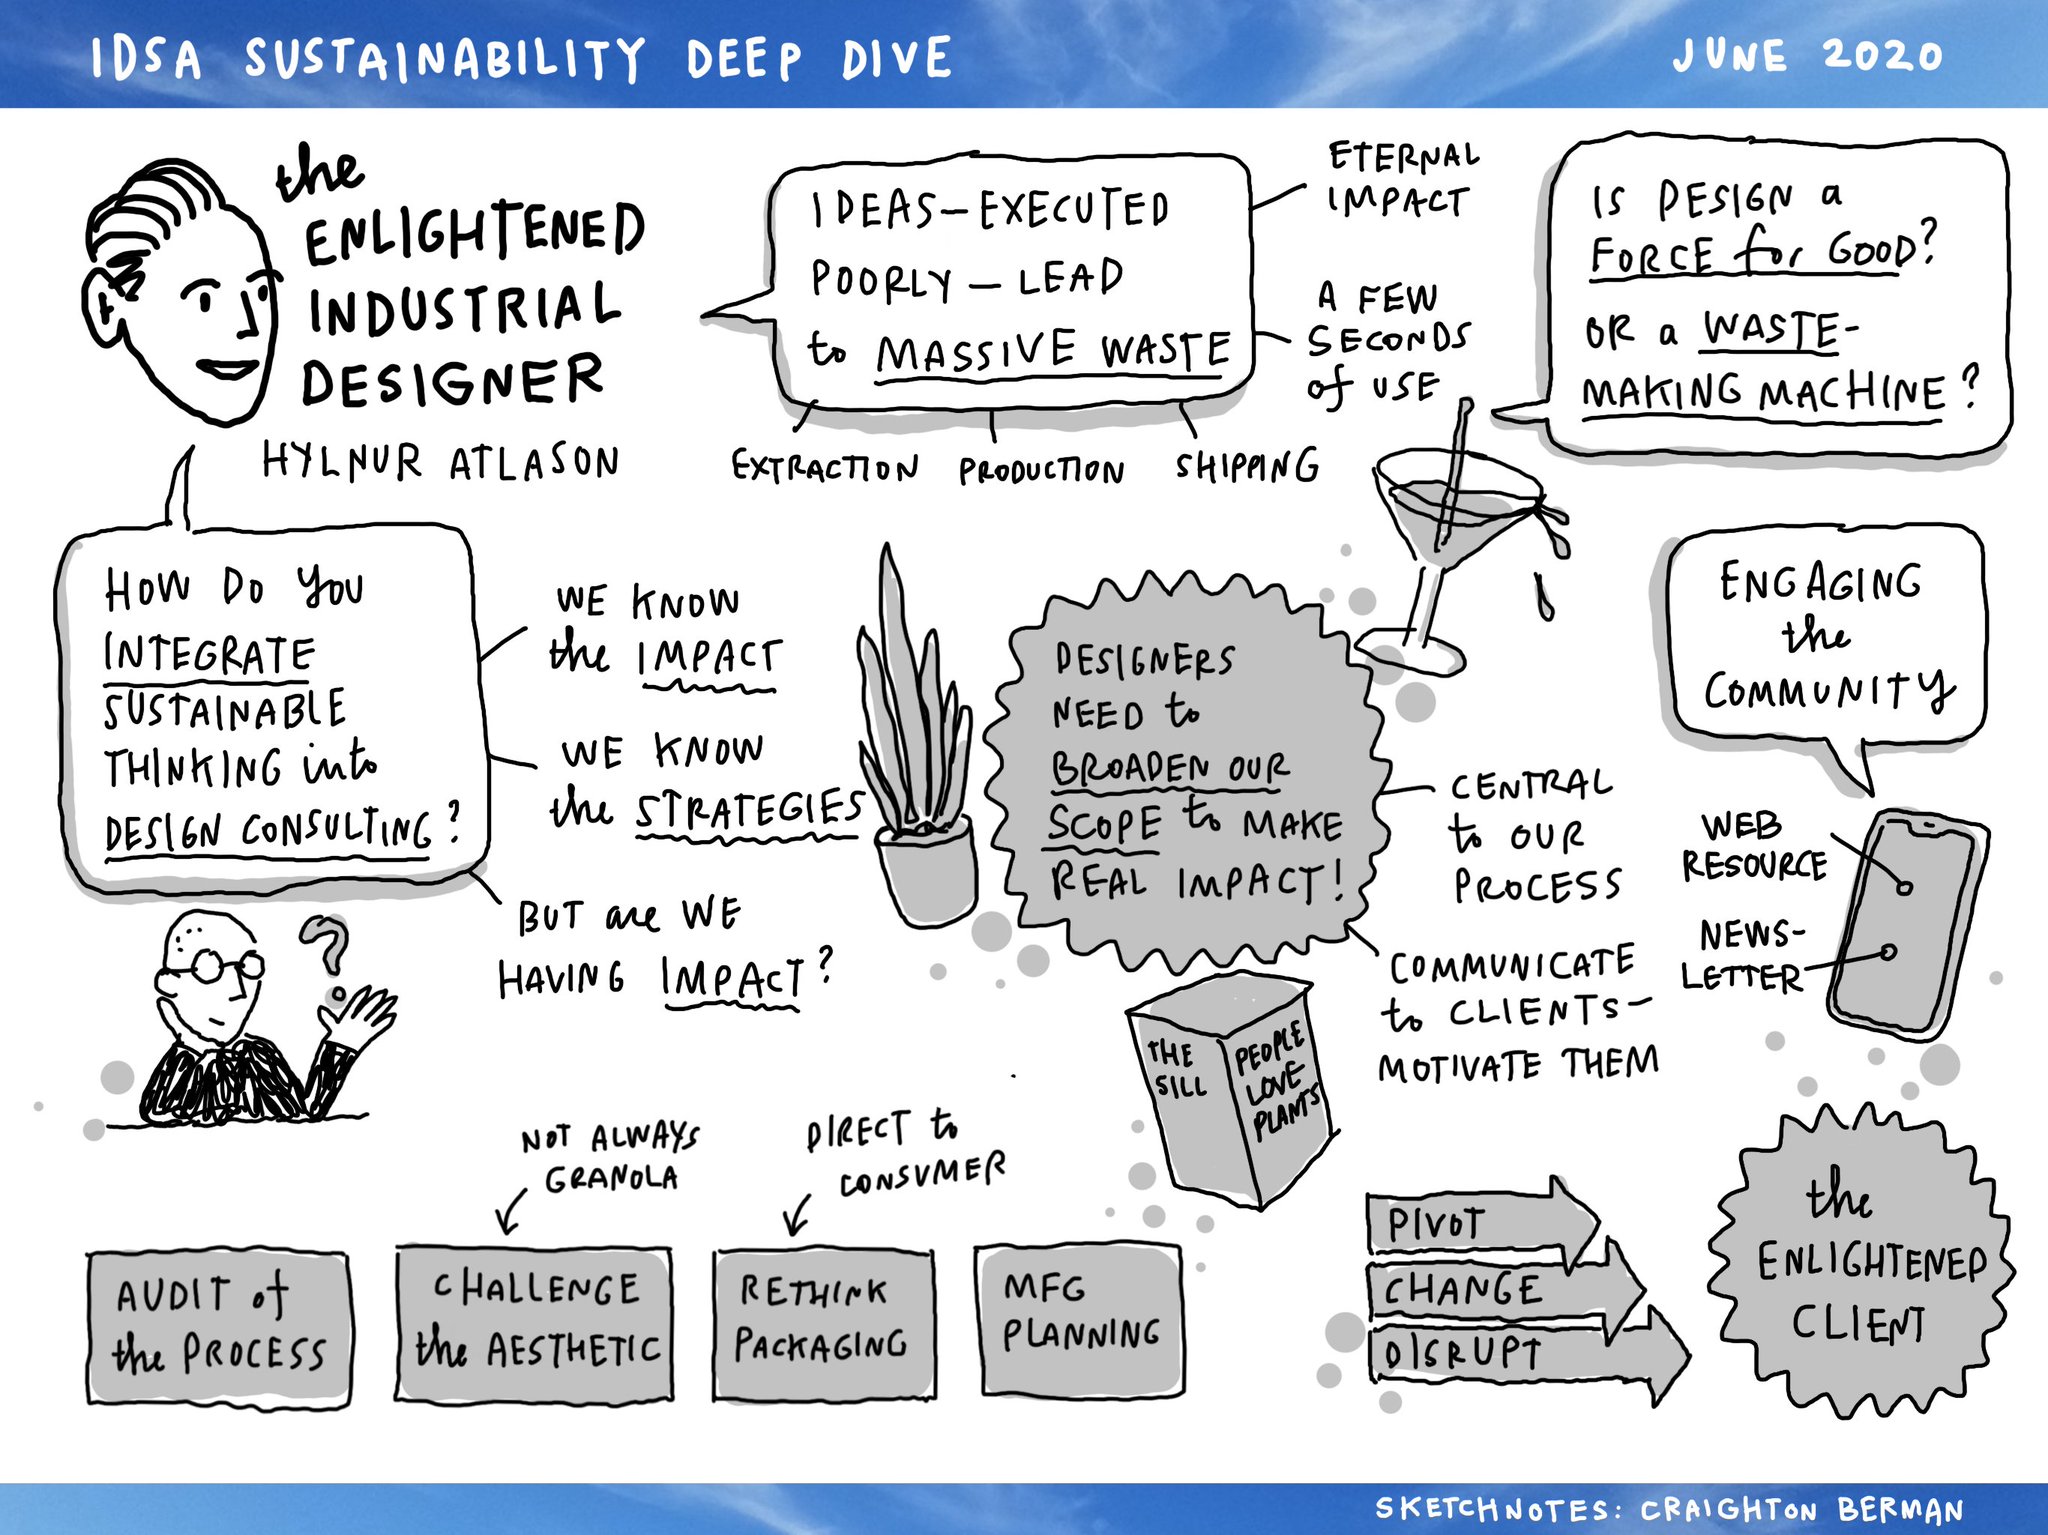 IDSA SUSTAINABILITY DEEP DIVE
JUNE 2020
the
ENLIGHTENED
INDUSTRIAL
DESIGNER
HYLNUR ATLASON
IDEAS—EXECUTED
POORLY—LEAD
to MASSIVE WASTE
ETERNAL
IMPACT
A FEW
SECONDS
of USE
EXTRACTION
PRODUCTION
SHIPPING
IS DESIGN a
FORCE for GOOD?
OR a WASTE-
MAKING MACHINE?
HOW DO YOU
INTEGRATE
SUSTAINABLE
THINKING into
DESIGN CONSULTING?
WE KNOW
the IMPACT
WE KNOW
the STRATEGIES
BUT are WE
HAVING IMPACT?
?
DESIGNERS
NEED to
BROADEN OUR
SCOPE to MAKE
REAL IMPACT!
CENTRAL
to OUR
PROCESS
COMMUNICATE
to CLIENTS—
MOTIVATE THEM
ENGAGING
the
COMMUNITY
WEB
RESOURCE
NEWS-
LETTER
THE
SILL
PEOPLE
LOVE
PLANTS
NOT ALWAYS
GRANOLA
DIRECT to
CONSUMER
AUDIT of
the PROCESS
CHALLENGE
the AESTHETIC
RETHINK
PACKAGING
MFG
PLANNING
PIVOT
CHANGE
DISRUPT
the
ENLIGHTENED
CLIENT
SKETCHNOTES: CRAIGHTON BERMAN